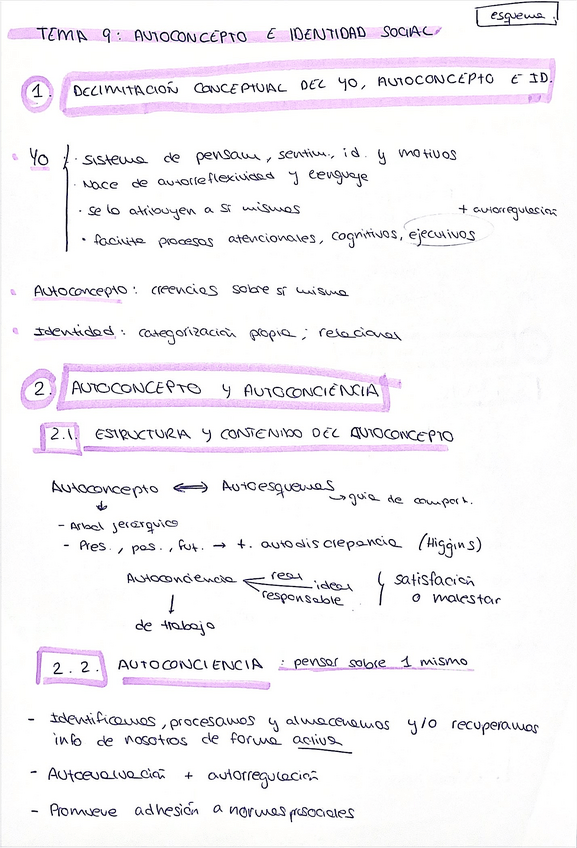 esquema.
TEMA 9: AUTOCONCEPTO E IDENTIDAD SOCIAL
1. DELIMITACIÓN CONCEPTUAL DEL YO, AUTOCONCEPTO E ID.
Yo · sistema de pensam, sentim., id. y motivos
· Nace de autorreflexividad y lenguaje
· se lo atribuyen a sí mismos
+ autorregulación
· facilita procesos atencionales, cognitivos, ejecutivos
Autoconcepto: creencias sobre sí mismo
Identidad: categorización propia; relacional
2. AUTOCONCEPTO Y AUTOCONCIENCIA
2.1. ESTRUCTURA Y CONTENIDO DEL AUTOCONCEPTO
Autoconcepto ⟺ Autoesquemas
↳ guía de comport.
- Árbol jerárquico
- Pres., pas., fut. → t. autodiscrepancia (Higgins)
Autoconciencia real ideal responsable
satisfacción o malestar
↓
de trabajo
2.2. AUTOCONCIENCIA: pensar sobre 1 mismo
- Identificamos, procesamos y almacenamos y/o recuperamos
info de nosotros de forma activa
- Autoevaluación + autorregulación
- Promueve adhesión a normas prosociales